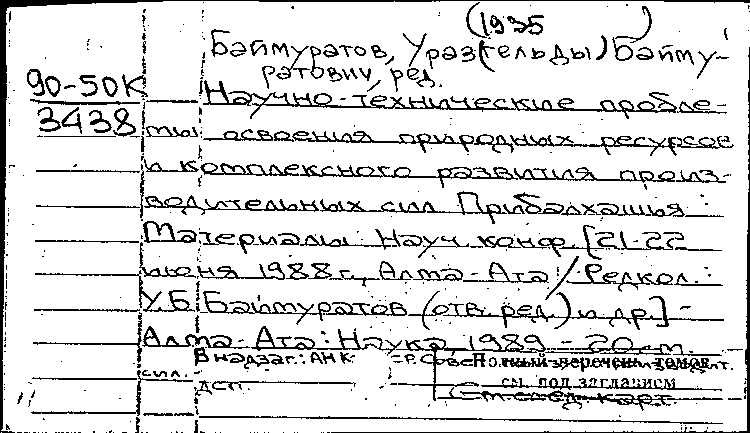 (1935 )
Баймуратов, Ураз(гельды) Байму-
ратович, ред.
90-50К
3438
Научно-технические пробле-
мы освоения природных ресурсов
и комплексного развития произ-
водительных сил Прибалхашья :
Материалы Науч. конф. [21-22
июня 1988 г., Алма-Ата / Редкол.:
У.Б Баймуратов (отв. ред.) и др.] -
Алма-Ата : Наука 1989 - 20 см
В надзаг.: АН К
сил. -
дсп.
Полный перечень томов
см. под заглавием
См. след. карт.